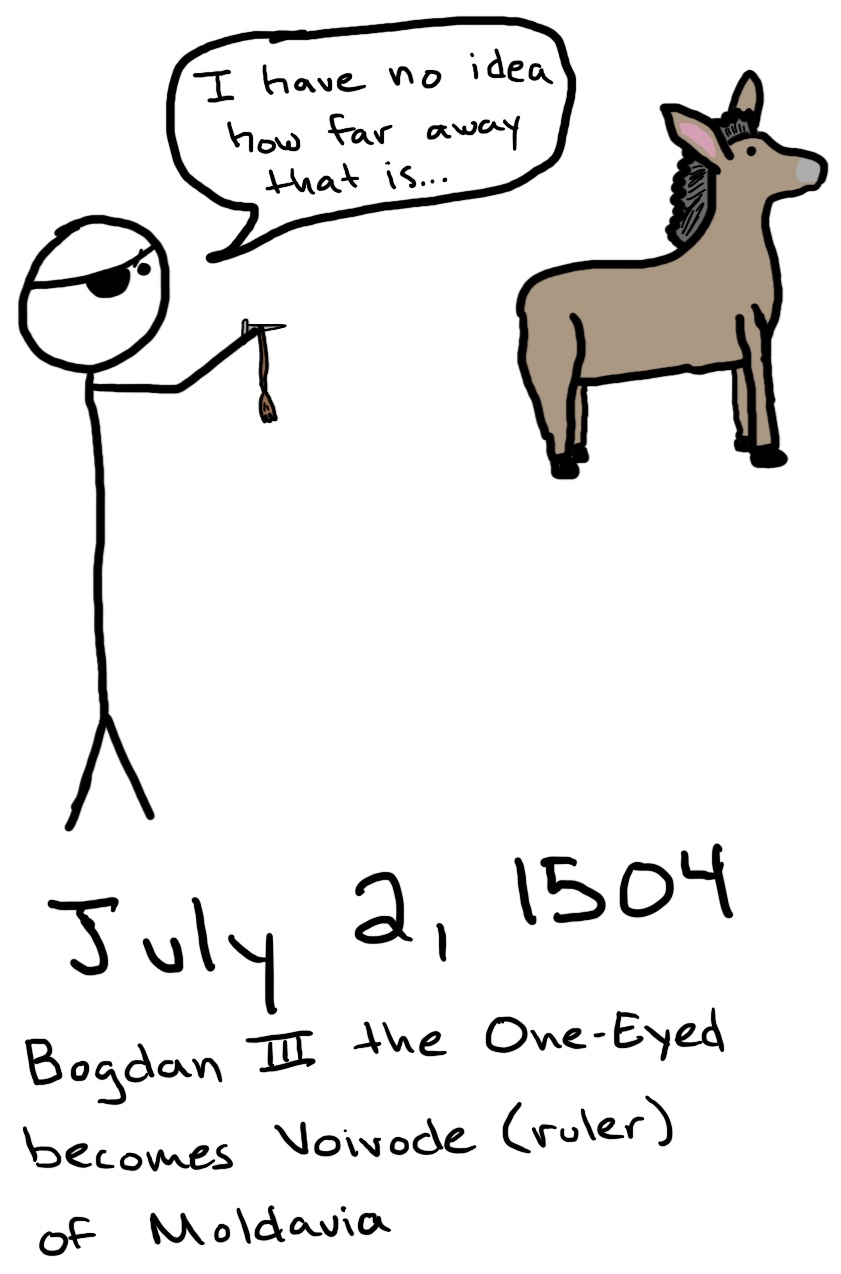 I have no idea
how far away
that is...
July 2, 1504
Bogdan III the One-Eyed
becomes Voivode (ruler)
of Moldavia